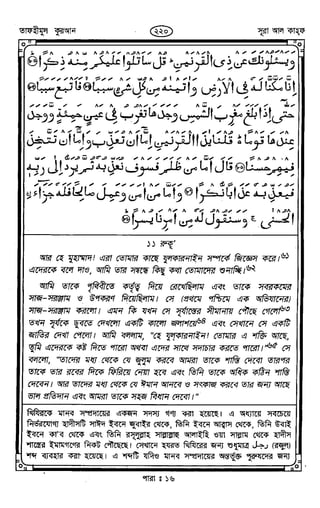 তাফহীমুল কুরআন
২২০
সূরা আল কাহ্ফ
وَيَسْئَلُونَكَ عَنْ ذِى الْقَرْنَيْنِ ۖ قُلْ سَاَتْلُوْا عَلَيْكُمْ مِّنْهُ ذِكْرًا
اِنَّا مَكَّنَّا لَهٗ فِى الْاَرْضِ وَاٰتَيْنٰهُ مِنْ كُلِّ شَىْءٍ سَبَبًا فَاَتْبَعَ سَبَبًا
حَتّٰى اِذَا بَلَغَ مَغْرِبَ الشَّمْسِ وَجَدَهَا تَغْرُبُ فِىْ عَيْنٍ حَمِئَةٍ وَّوَجَدَ
عِنْدَهَا قَوْمًا ۗ قُلْنَا يٰذَا الْقَرْنَيْنِ اِمَّا اَنْ تُعَذِّبَ وَاِمَّا اَنْ تَتَّخِذَ
فِيْهِمْ حُسْنًا قَالَ اَمَّا مَنْ ظَلَمَ فَسَوْفَ نُعَذِّبُهٗ ثُمَّ يُرَدُّ اِلٰى رَبِّهٖ
فَيُعَذِّبُهٗ عَذَابًا نُّكْرًا وَاَمَّا مَنْ اٰمَنَ وَعَمِلَ صَالِحًا فَلَهٗ جَزَاءَۨ
الْحُسْنٰى ۚ وَسَنَقُوْلُ لَهٗ مِنْ اَمْرِنَا يُسْرًا
১১ রুকূ'
আর হে মুহাম্মাদ! এরা তোমার কাছে যুলকারনাইন সম্পর্কে জিজ্ঞেস করে।৬১
এদেরকে বলে দাও, আমি তার সম্বন্ধে কিছু কথা তোমাদের শুনাচ্ছি।৬২
আমি তাকে পৃথিবীতে কর্তৃত্ব দিয়ে রেখেছিলাম এবং তাকে সবরকমের
সাজ-সরঞ্জাম ও উপকরণ দিয়েছিলাম। সে (প্রথমে পশ্চিমে এক অভিযানের)
সাজ-সরঞ্জাম করলো। এমন কি যখন সে সূর্যাস্তের সীমানায় পৌঁছে গেলো৬৩
তখন সূর্যকে ডুবতে দেখলো একটি কালো জলাশয়ে৬৪ এবং সেখানে সে একটি
জাতির দেখা পেলো। আমি বললাম, "হে যুলকারনাইন! তোমার এ শক্তি আছে,
তুমি এদেরকে কষ্ট দিতে পারো অথবা এদের সাথে সদাচার করতে পারো।"৬৫ সে
বললো, "তাদের মধ্য থেকে যে জুলুম করবে আমরা তাকে শাস্তি দেবো তারপর
তাকে তার রবের দিকে ফিরিয়ে নেয়া হবে এবং তিনি তাকে অধিক কঠিন শাস্তি
দেবেন। আর তাদের মধ্য থেকে যে ঈমান আনবে ও সৎকাজ করবে তার জন্য আছে
ভাল প্রতিদান এবং আমরা তাকে সহজ বিধান দেবো।"
খিযিরকে মানব সম্প্রদায়ের একজন সদস্য গণ্য করা হয়েছে। এ অধ্যায়ে সবচেয়ে
নির্ভরযোগ্য হাদীসটি সাঈদ ইবনে জুবাইর থেকে, তিনি ইবনে আব্বাস থেকে, তিনি উবাই
ইবনে কা'ব থেকে এবং তিনি রসূলুল্লাহ সাল্লাল্লাহু আলাইহি ওয়া সাল্লাম থেকে হাদীস
শাস্ত্রের ইমামগণের নিকট পৌঁছেছে। সেখানে হযরত খিযিরের জন্য শুধুমাত্র رجل (রজুল)
শব্দ ব্যবহার করা হয়েছে। এ শব্দটি যদিও মানব সম্প্রদায়ের অন্তর্ভুক্ত পুরুষদের জন্য
পারা : ১৬